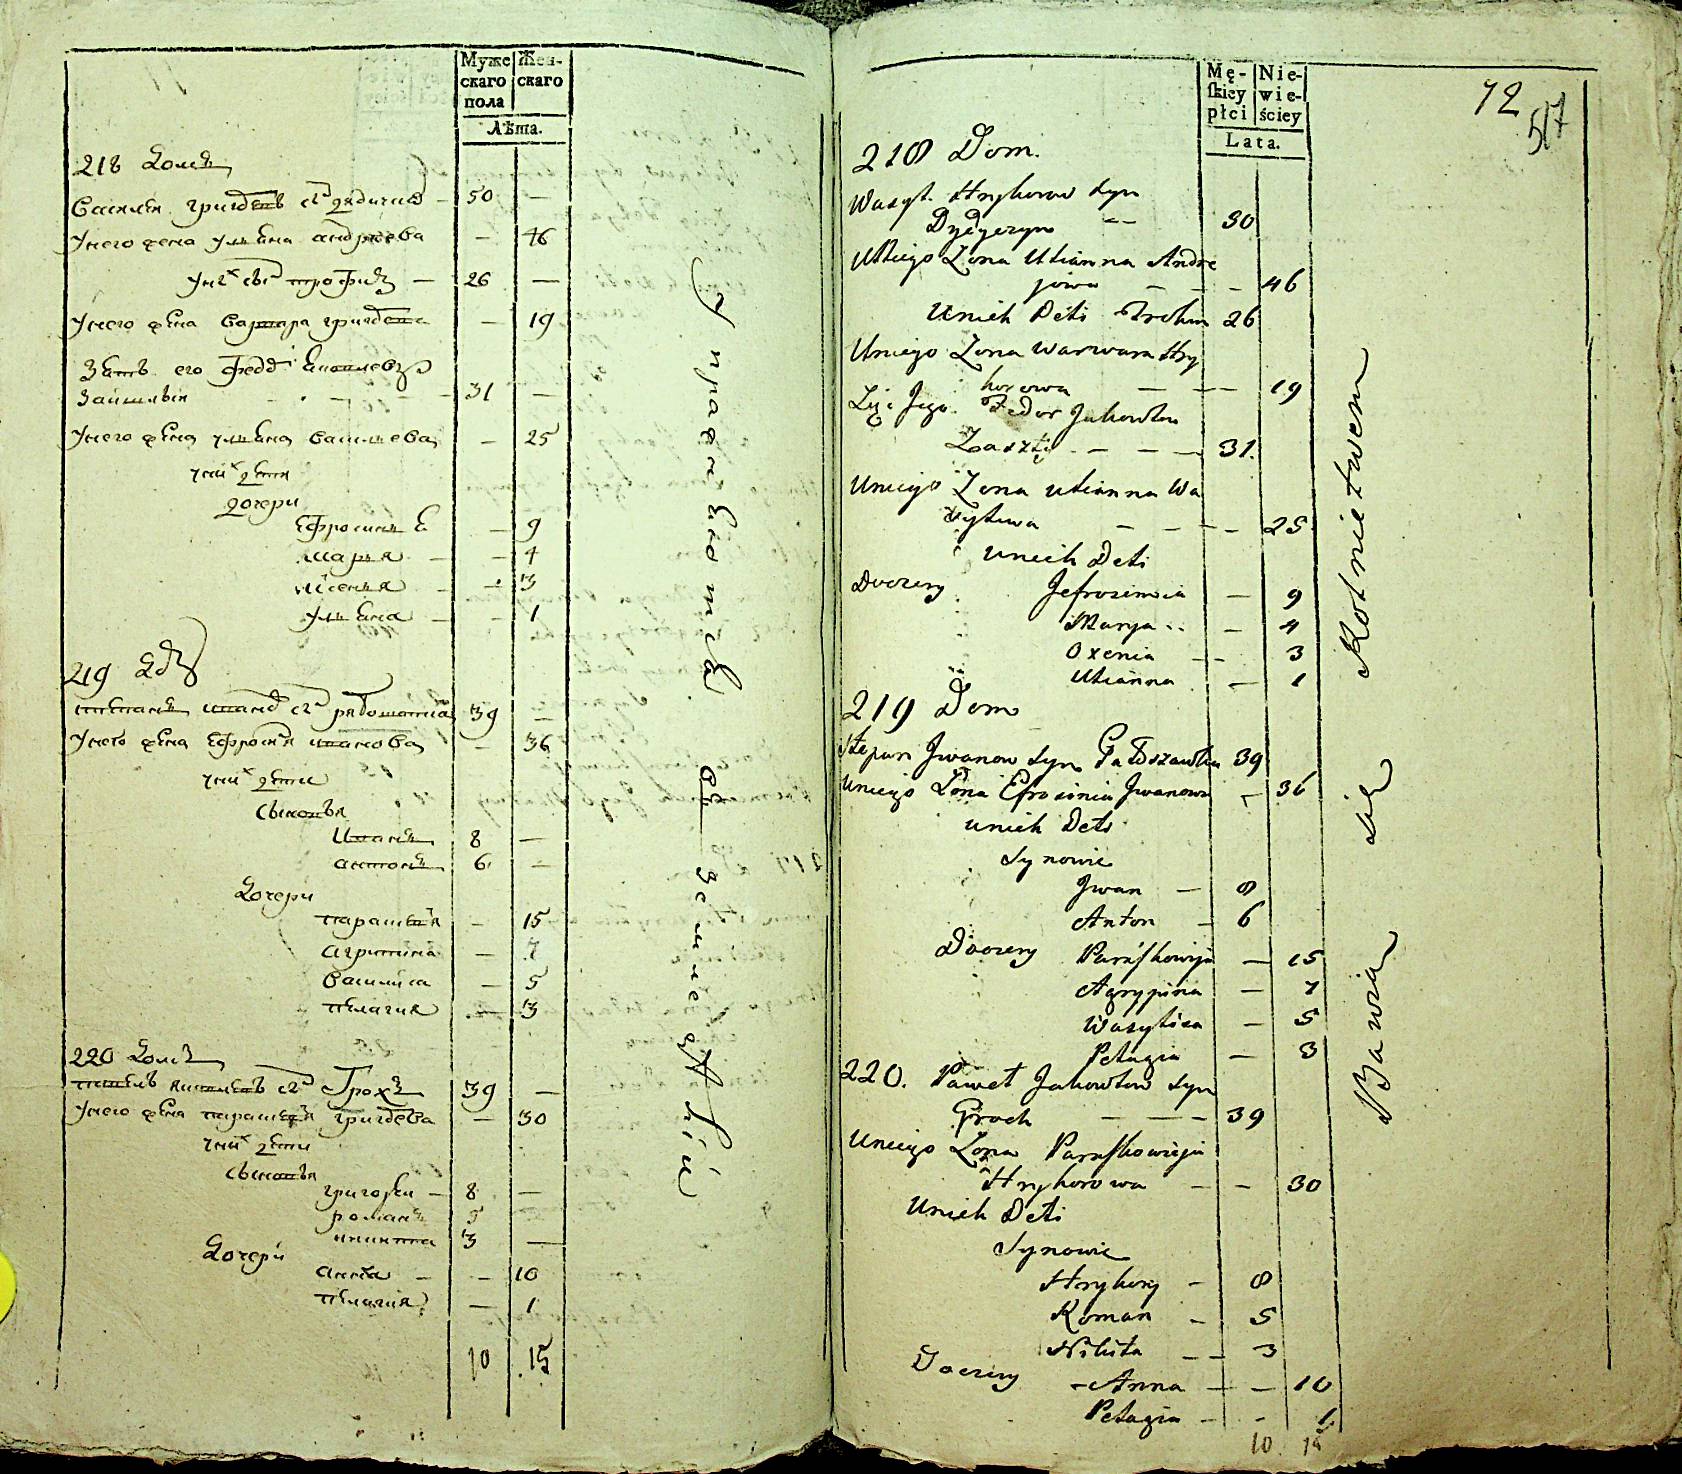 Муже Жен-
скаго скаго
пола
Лѣта.
218 Домъ
Василей григоревъ сынъ 50 —
Унего жена ульяна андреева — 46
Унихъ сынъ трофимъ — 26 —
Унего жена варвара григорева — 19
Зять его федоръ Яковлевъ
31 —
Унего жена ульяна васильева — 25
Унихъ дети
дочери
Ефросинья — 9
марья — 4
ксенья — 3
ульяна — 1
219 Домъ
степанъ ивановъ сынъ 39 —
Унего жена Ефросинья иванова — 36
Унихъ дети
сыновья
Иванъ 8 —
антонъ 6 —
Дочери
парасковья — 15
агрипина — 7
василиса — 5
пелагия — 3
220 Домъ
павелъ яковлевъ сынъ Грохъ 39 —
Унего жена парасковья григорева — 30
Унихъ дети
сыновья
григорей — 8 —
романъ 5
никита 3 —
Дочери
анна — — 10
пелагия — 1
10 15
Упражняются въ земледѣлии
Mę- Nie-
skiey wie-
płci ściey
Lata.
72
517
218 Dom.
Wasyl. Hryhorow syn
30
Uniego Zona Ulianna Andre
jowa — — — 46
Unich Deti Trohim 26
Uniego Zona Warwara Hry
horowa — — — 19
Zięć Jego Fedor Jakowlew
31.
Uniego Zona Ulianna Wa
sylewa — — — — 25
Unich Deti
Doczery Jefrosinia — 9
Marya — 4
Oxenia — — 3
Ulianna — 1
219 Dom
Stepan Jwanow syn 39
Uniego Zona Efrosinia Jwanowa — 36
Unich Deti
Synowie
Jwan — 8
Anton — 6
Doczery Paraskowija — 15
Agrypina — 7
Wasylisa — 5
Pelagia — 3
220. Paweł Jakowlew syn
Groch — — — 39
Uniego Zona Paraskowieja
Hryhorowa — — 30
Unich Deti
Synowie
Hryhory — 8
Roman — 5
Nikita — — 3
Doczery — Anna — — 10
Pelagia — — 1
10 15
Bawią się Rolnictwem